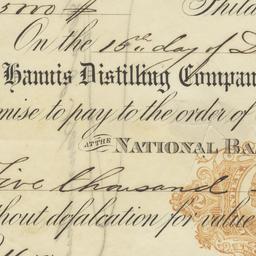 5000 # Phila
On the 15th day of D
Hannis Distilling Compan
mise to pay to the order of
AT THE NATIONAL BA
Five thousand
thout defalcation for value